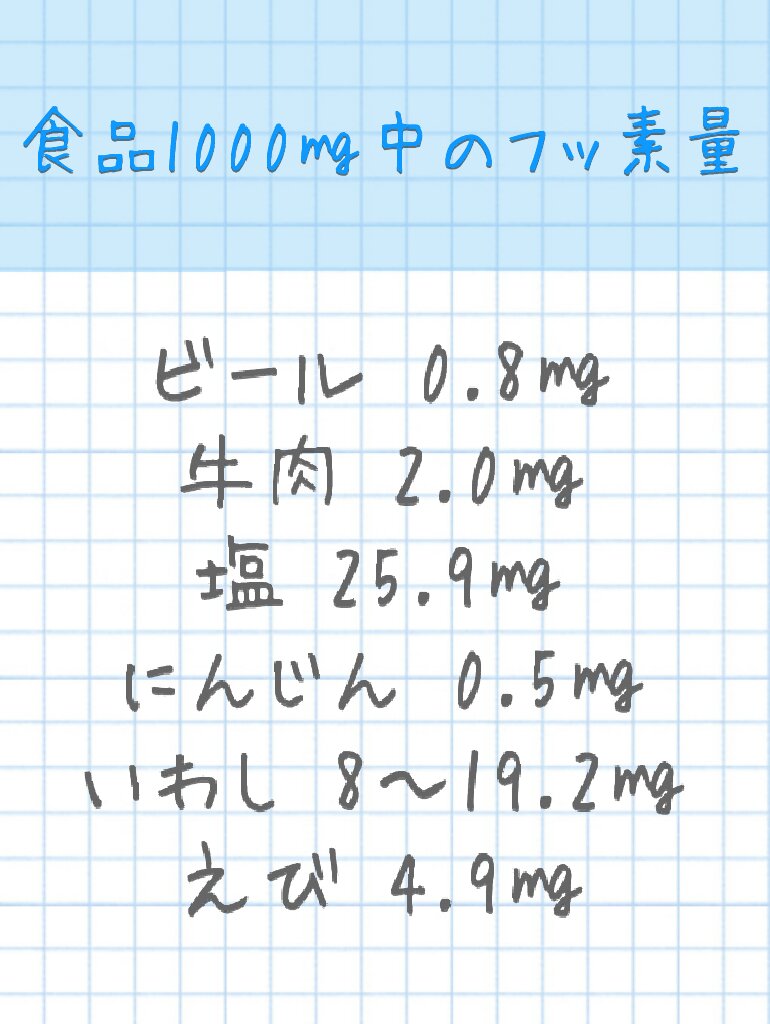 食品1000mg中のフッ素量
ビール 0.8mg
牛肉 2.0mg
塩 25.9mg
にんじん 0.5mg
いわし 8〜19.2mg
えび 4.9mg